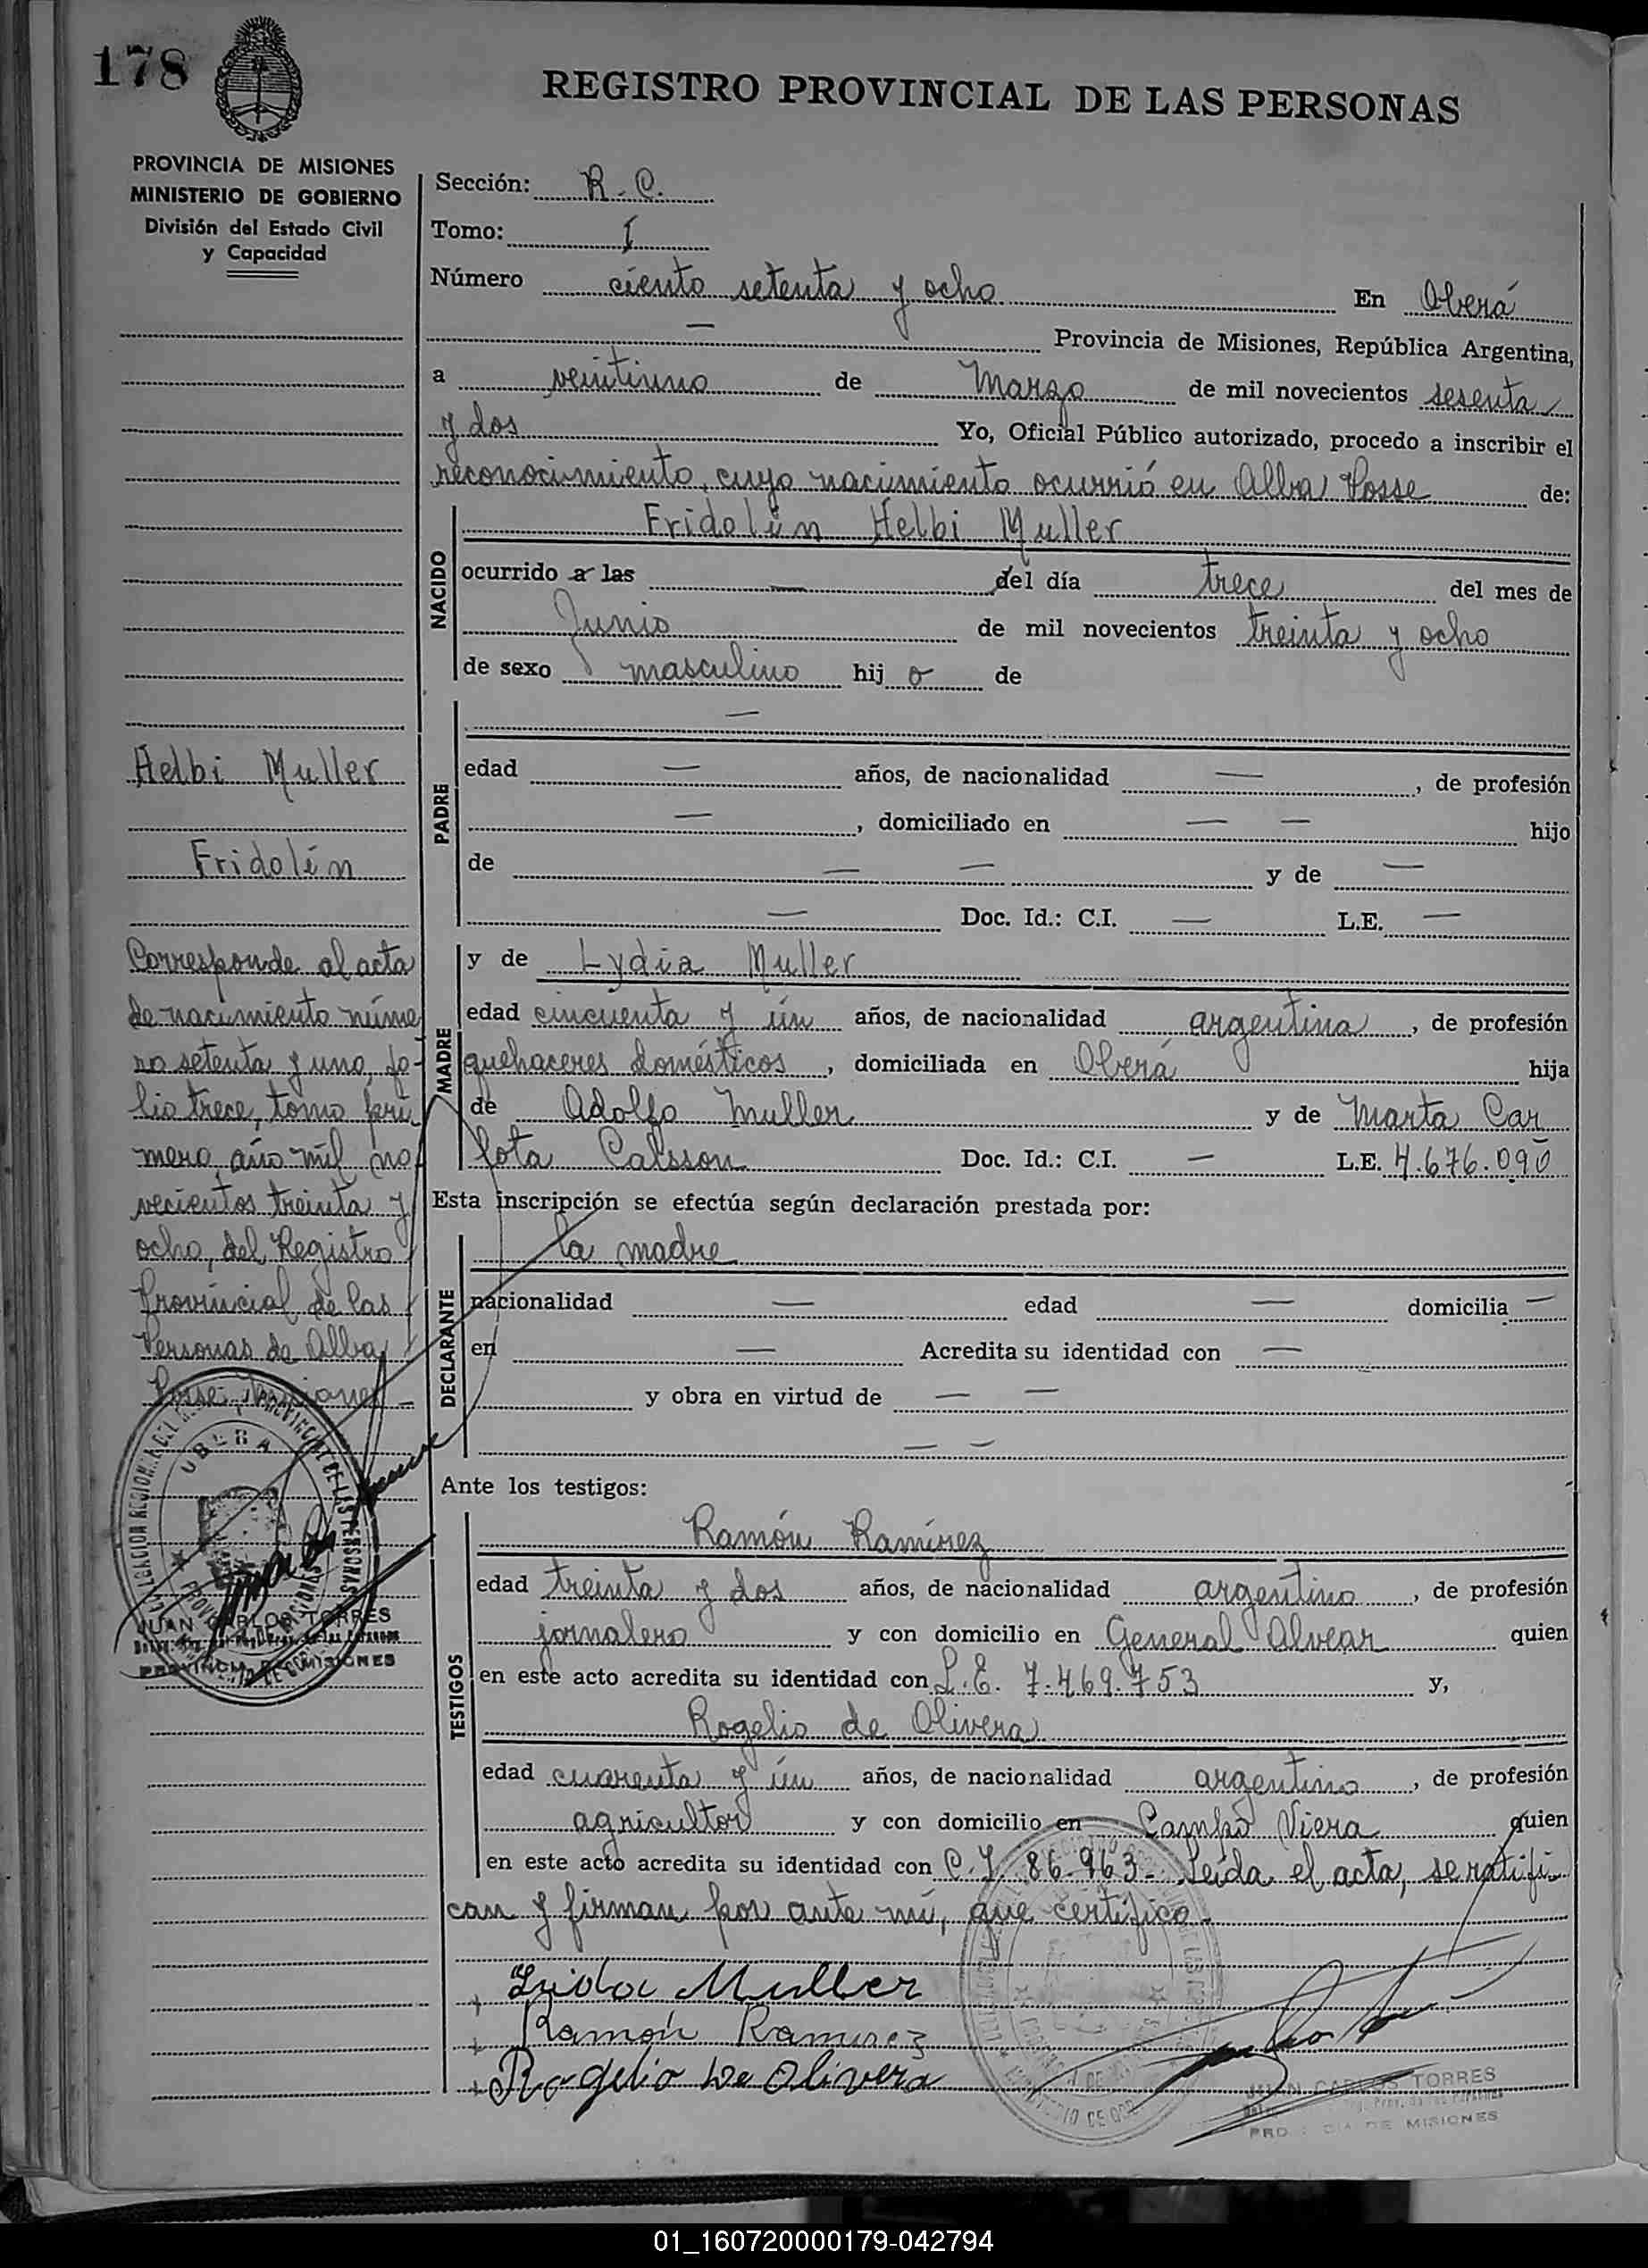 178
REGISTRO PROVINCIAL DE LAS PERSONAS
PROVINCIA DE MISIONES
MINISTERIO DE GOBIERNO
División del Estado Civil
y Capacidad
Sección: R. C.
Tomo: I
Número ciento setenta y ocho En Oberá
— Provincia de Misiones, República Argentina,
a veintiuno de Marzo de mil novecientos sesenta
y dos Yo, Oficial Público autorizado, procedo a inscribir el
reconocimiento, cuyo nacimiento ocurrió en Alba Posse de:
NACIDO
Fridolín Helbi Muller
ocurrido a las — del día trece del mes de
Junio de mil novecientos treinta y ocho
de sexo masculino hij o de
PADRE
—
edad — años, de nacionalidad —, de profesión
—, domiciliado en — — hijo
de — — y de —
— Doc. Id.: C.I. — L.E. —
MADRE
y de Lydia Muller
edad cincuenta y ún años, de nacionalidad argentina, de profesión
quehaceres domésticos, domiciliada en Oberá hija
de Adolfo Muller y de Marta Car
lota Calsson Doc. Id.: C.I. — L.E. 4.676.090
Esta inscripción se efectúa según declaración prestada por:
DECLARANTE
la madre
nacionalidad — edad — domicilia —
en — Acredita su identidad con —
y obra en virtud de — —
— —
Ante los testigos:
TESTIGOS
Ramón Ramírez
edad treinta y dos años, de nacionalidad argentino, de profesión
jornalero y con domicilio en General Alvear quien
en este acto acredita su identidad con L.E. 7.469.753 y,
Rogelio de Olivera
edad cuarenta y ún años, de nacionalidad argentino, de profesión
agricultor y con domicilio en Campo Viera quien
en este acto acredita su identidad con C.I. 86.963.- Leída el acta, se ratifi-
can y firman por ante mí, que certifico.-
Muller
Ramón Ramirez
Rogelio De Olivera
JUAN CARLOS TORRES
DE MISIONES
Helbi Muller
Fridolín
Corresponde al acta
de nacimiento núme
ro setenta y uno, fo-
lio trece, tomo pri-
mero, año mil no
vecientos treinta y
ocho, del Registro
Provincial de las
Personas de Alba
Posse Misiones -
OBERA
JUAN CARLOS TORRES
PROVINCIA DE MISIONES
01_160720000179-042794